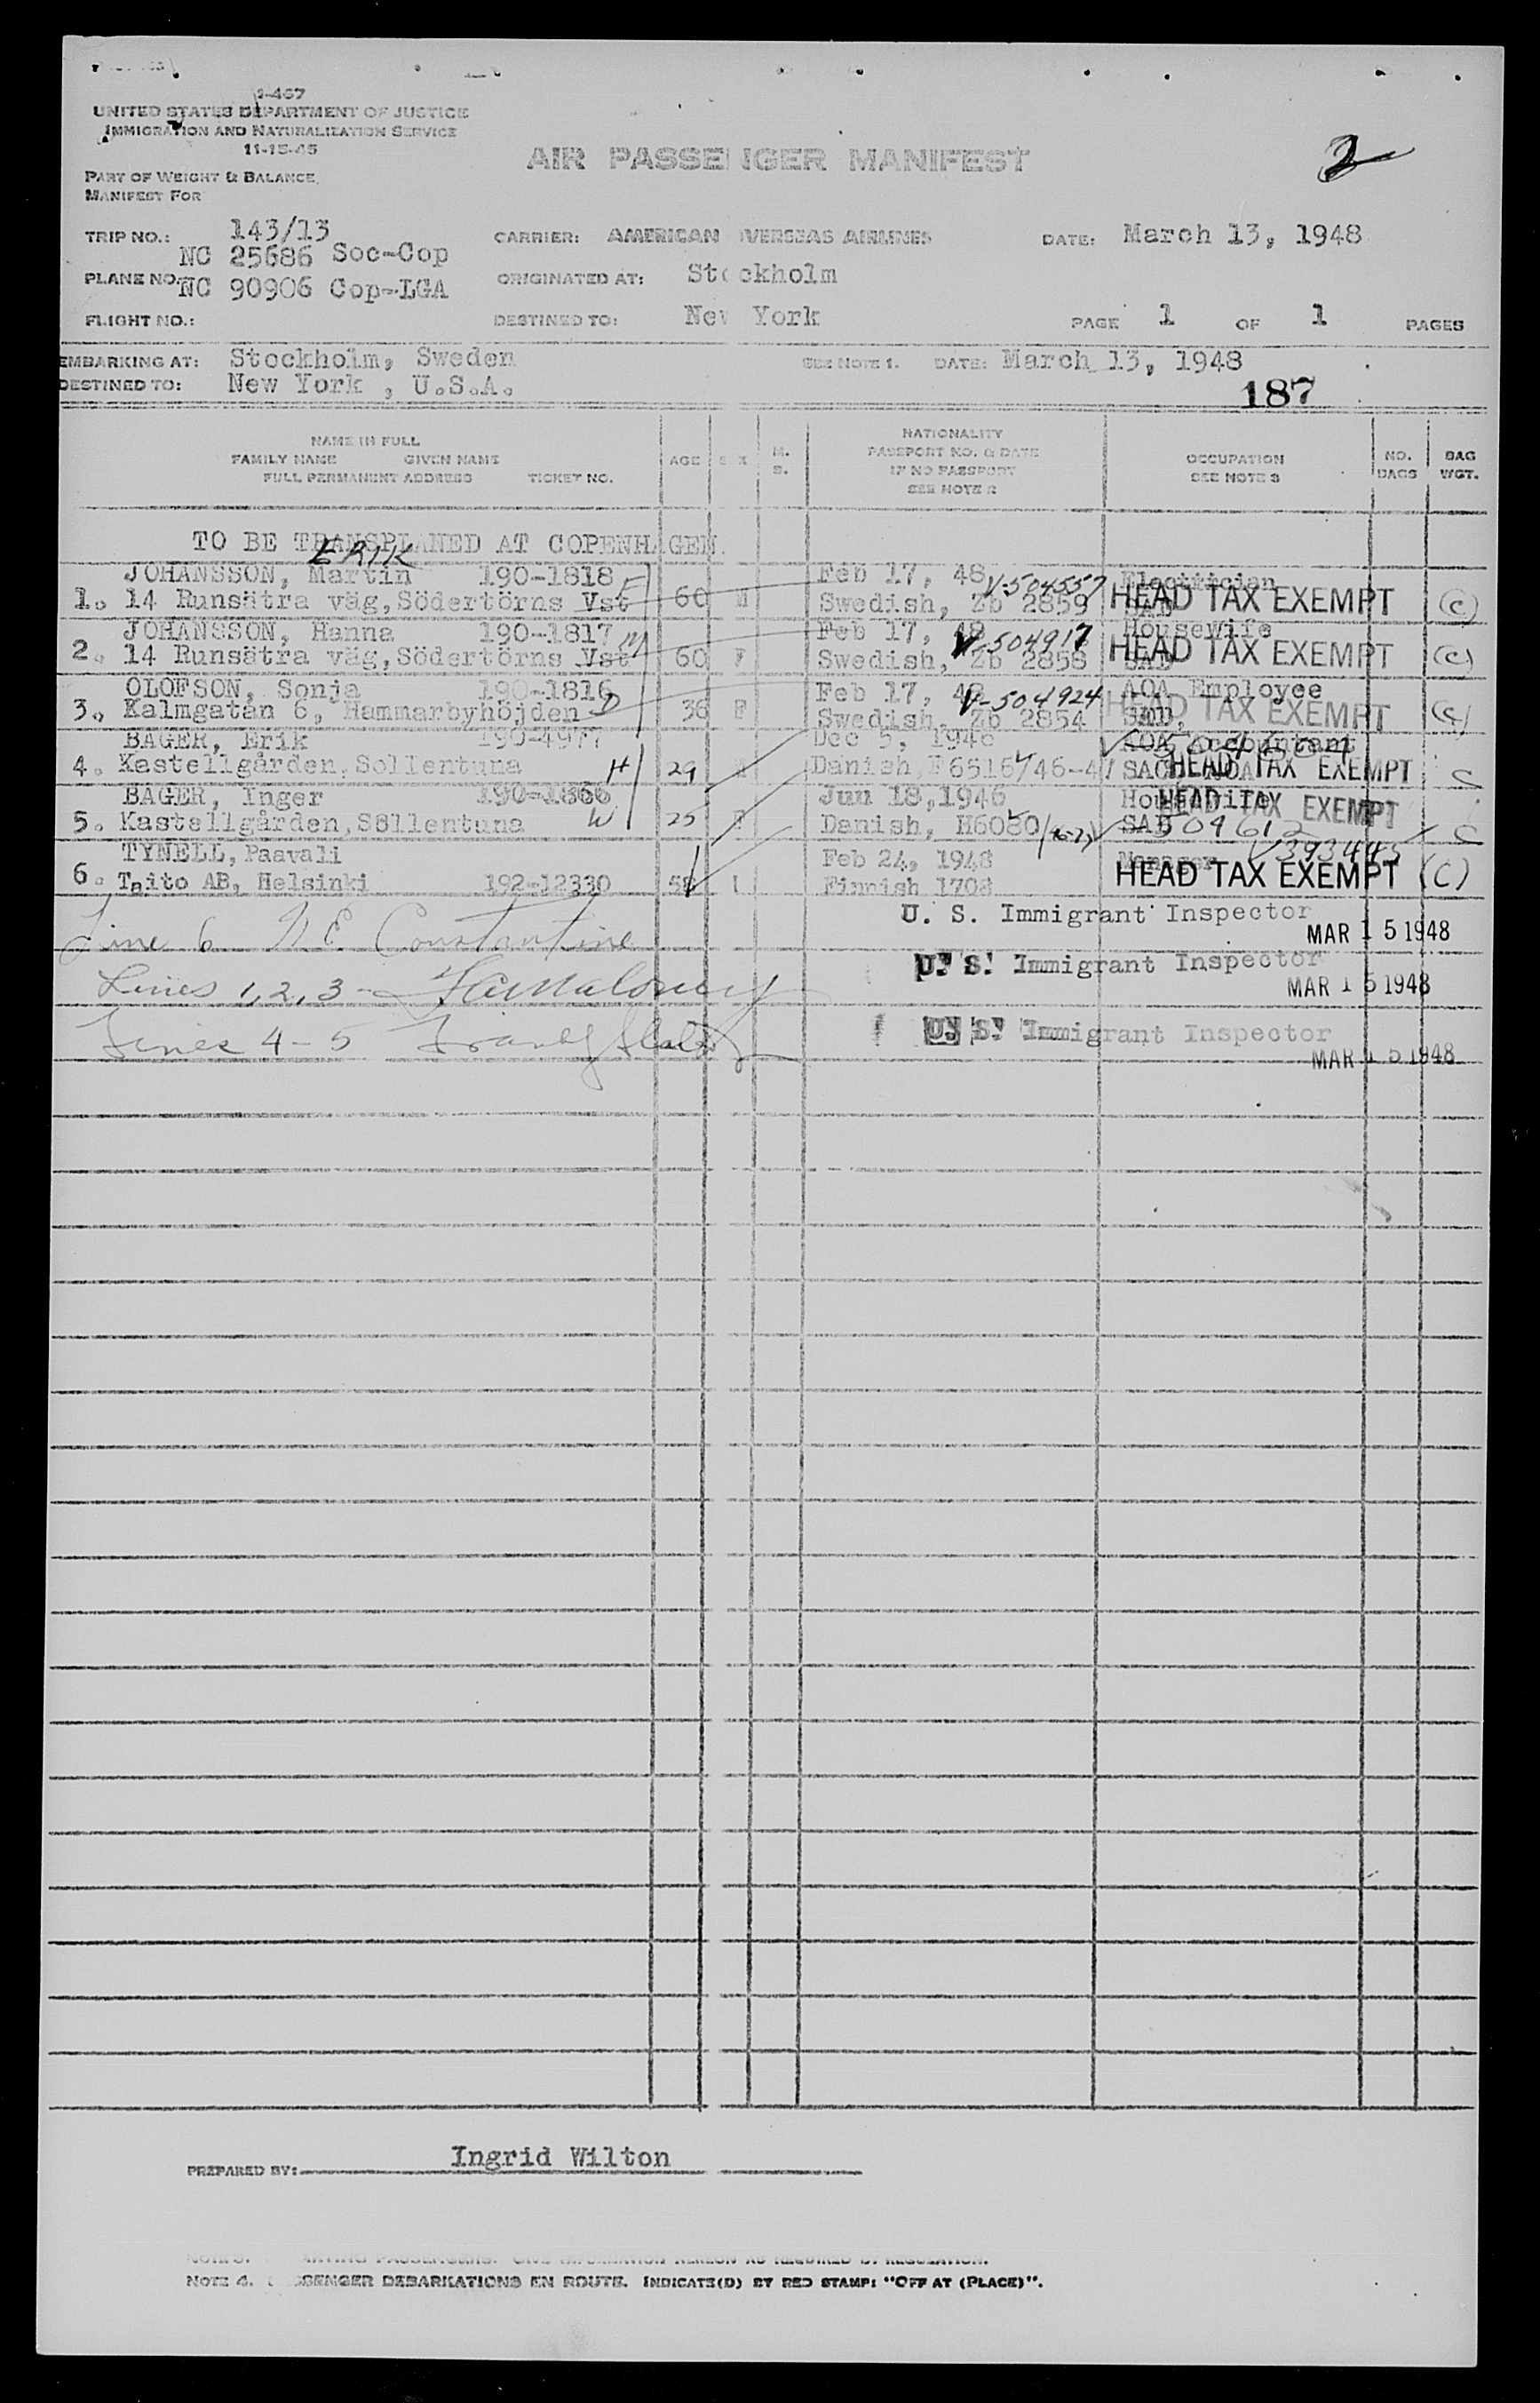 I-467
UNITED STATES DEPARTMENT OF JUSTICE
IMMIGRATION AND NATURALIZATION SERVICE
11-15-45
AIR PASSENGER MANIFEST
2
PART OF WEIGHT & BALANCE
MANIFEST FOR
TRIP NO.: 143/13 CARRIER: AMERICAN OVERSEAS AIRLINES DATE: March 13, 1948
NC 25686 Soc-Cop
PLANE NO. NC 90906 Cop-LGA ORIGINATED AT: Stockholm
FLIGHT NO.: DESTINED TO: New York PAGE 1 OF 1 PAGES
EMBARKING AT: Stockholm, Sweden SEE NOTE 1. DATE: March 13, 1948
DESTINED TO: New York , U.S.A.
187
NAME IN FULL
FAMILY NAME GIVEN NAME
FULL PERMANENT ADDRESS TICKET NO.
AGE
SEX
M.
S.
NATIONALITY
PASSPORT NO. & DATE
IF NO PASSPORT
SEE NOTE 2
OCCUPATION
SEE NOTE 3
NO.
BAGS
BAG
WGT.
TO BE TRANSPLANED AT COPENHAGEN.
ERIK
JOHANSSON, Martin 190-1818 Feb 17, 48 V-504557 Electrician
1. 14 Runsätra väg, Södertörns Vst F 60 M Swedish, Zb 2859 SAD HEAD TAX EXEMPT (C)
JOHANSSON, Hanna 190-1817 Feb 17, 48 V-504917 Housewife
2. 14 Runsätra väg, Södertörns Vst M 60 F Swedish, Zb 2858 SAD HEAD TAX EXEMPT (C)
OLOFSON, Sonja 190-1816 Feb 17, 48 V-504924 AOA Employee
3. Kalmgatan 6, Hammarbyhöjden D 36 F Swedish, Zb 2854 SAD, HEAD TAX EXEMPT (C)
BAGER, Erik 190-4977 Dec 5, 1946 AOA Accountant
4. Kastellgården, Sollentuna H 29 Danish, HEAD TAX EXEMPT C
BAGER, Inger 190-1866 Jun 18, 1946 Housewife HEAD TAX EXEMPT
5. Kastellgården, Söllentuna W 25 F Danish, H6080 SAD 509612 C
TYNELL, Paavali Feb 24, 1948 Manager V393445
6. Taito AB, Helsinki 192-12330 58 Finnish 1708 HEAD TAX EXEMPT (C)
Line 6 N E Constantine U. S. Immigrant Inspector MAR 15 1948
Lines 1, 2, 3 - Maloney U. S. Immigrant Inspector MAR 15 1948
Lines 4-5 U. S. Immigrant Inspector MAR 15 1948
PREPARED BY: Ingrid Wilton
NOTE 4. PASSENGER DEBARKATIONS EN ROUTE. INDICATE(D) BY RED STAMP: "OFF AT (PLACE)".